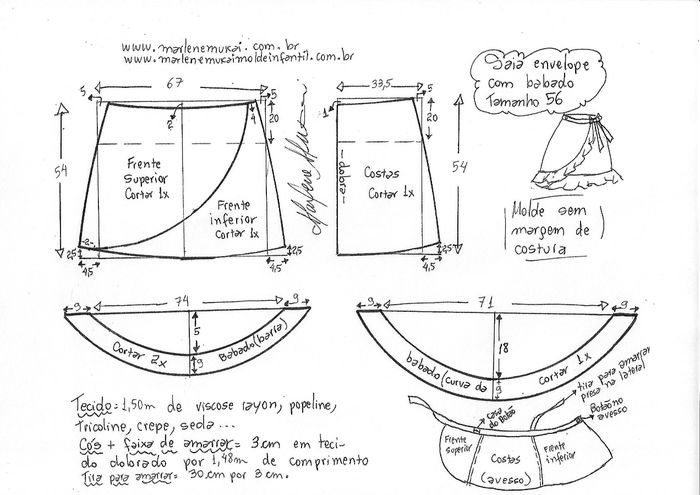 www.marlenemukai.com.br
www.marlenemukaimoldeinfantil.com.br
Saia envelope
com babado
Tamanho 56
67
5
5
2
4
20
54
Frente
Superior
Cortar 1x
Frente
inferior
Cortar 1x
2
2,5
2,5
4,5
4,5
33,5
5
1
20
54
dobra
Costas
Cortar 1x
2,5
4,5
Marlene Mukai
Molde sem
margem de
costura
9
74
9
5
9
Cortar 2x
Babado (barra)
9
71
9
18
9
babado (curva da
Cortar 1x
Tecido = 1,50m de viscose rayon, popeline,
tricoline, crepe, seda...
Cós + faixa de amarrar = 3cm em teci-
do dobrado por 1,48m de comprimento
Tira para amarrar = 30cm por 3cm.
Casa
do Botão
tira para amarrar
presa na lateral
Botão no
avesso
Frente
superior
Costas
(avesso)
Frente
inferior